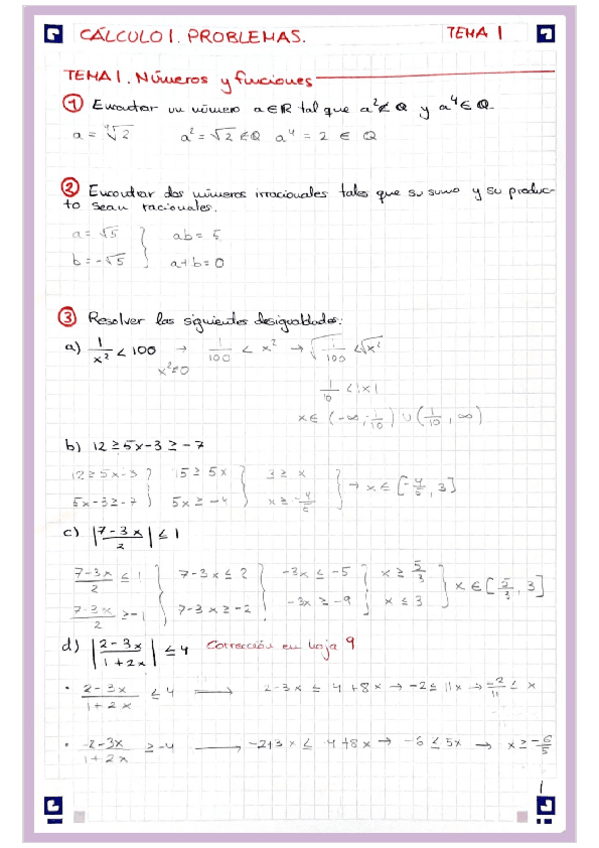 CÁLCULO I. PROBLEMAS. TEMA 1
TEMA 1. Números y funciones
1 Encontrar un número a∈ℝ tal que a²∉Q y a⁴∈Q.
a = ⁴√2 a² = √2 ∉ Q a⁴ = 2 ∈ Q
2 Encontrar dos números irracionales tales que su suma y su produc-
to sean racionales.
a = √5 } ab = 5
b = -√5 } a+b = 0
3 Resolver las siguientes desigualdades:
a) 1/x² < 100 → 1/100 < x² → √(1/100) < √x²
x²≠0
1/10 < |x|
x ∈ (-∞, -1/10) ∪ (1/10, ∞)
b) 12 ≥ 5x-3 ≥ -7
12 ≥ 5x-3 } 15 ≥ 5x } 3 ≥ x } → x ∈ [-4/5, 3]
5x-3 ≥ -7 } 5x ≥ -4 } x ≥ -4/5
c) |(7-3x)/2| ≤ 1
(7-3x)/2 ≤ 1 } 7-3x ≤ 2 } -3x ≤ -5 } x ≥ 5/3 } x ∈ [5/3, 3]
(7-3x)/2 ≥ -1 } 7-3x ≥ -2 } -3x ≥ -9 } x ≤ 3
d) |(2-3x)/(1+2x)| ≤ 4 Corrección en hoja 9
• (2-3x)/(1+2x) ≤ 4 → 2-3x ≤ 4+8x → -2 ≤ 11x → -2/11 ≤ x
• (2-3x)/(1+2x) ≥ -4 → -2+3x ≤ 4+8x → -6 ≤ 5x → x ≥ -6/5
1